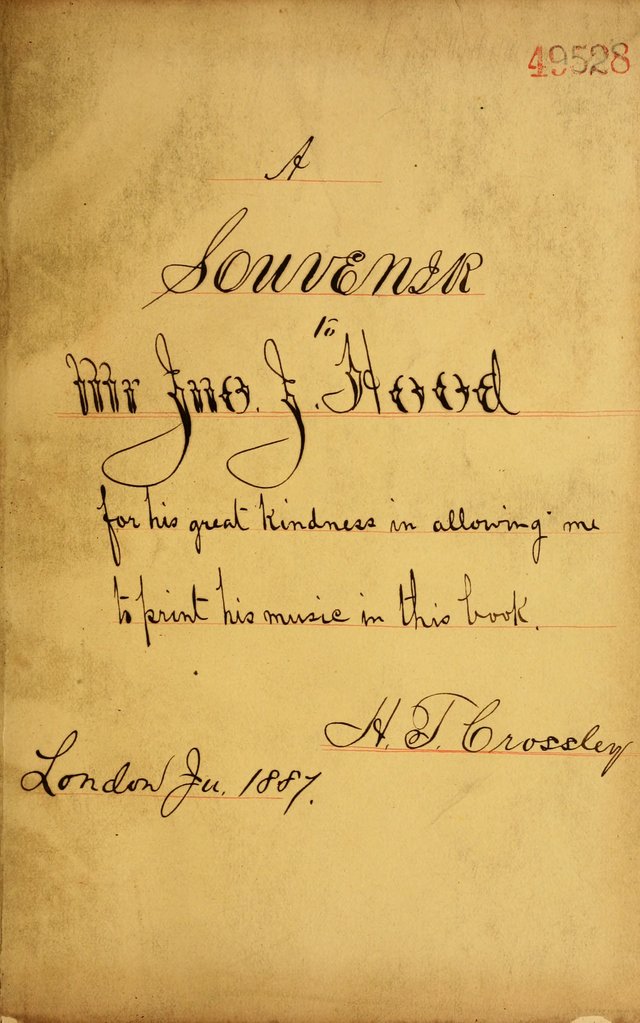 49528
A
SOUVENIR
to
Mr Jno. J. Hood
for his great kindness in allowing me
to print his music in this book.
H. T. Crossley
London Ju. 1887.